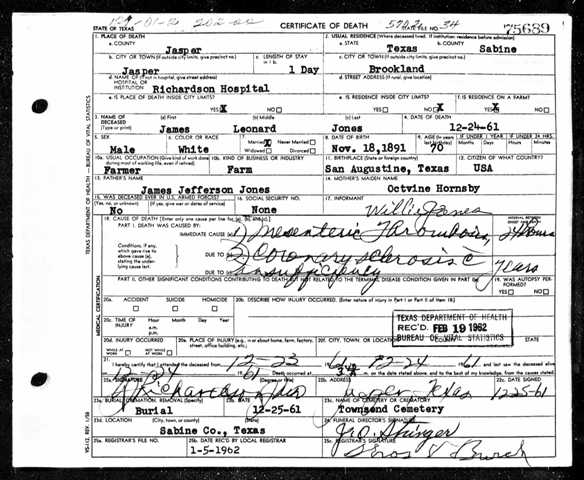 STATE OF TEXAS
CERTIFICATE OF DEATH
STATE FILE NO.
34
75689
1. PLACE OF DEATH
a. COUNTY
Jasper
2. USUAL RESIDENCE (Where deceased lived. If institution: residence before admission)
a. STATE
Texas
b. COUNTY
Sabine
b. CITY OR TOWN (If outside city limits, give precinct no.)
Jasper
c. LENGTH OF STAY
in 1 b.
1 Day
c. CITY OR TOWN (If outside city limits, give precinct no.)
Brookland
d. NAME OF (If not in hospital, give street address)
HOSPITAL OR
INSTITUTION
Richardson Hospital
d. STREET ADDRESS (If rural, give location)
e. IS PLACE OF DEATH INSIDE CITY LIMITS?
YES X NO
e. IS RESIDENCE INSIDE CITY LIMITS?
YES NO X
f. IS RESIDENCE ON A FARM?
YES X NO
3. NAME OF
DECEASED
(Type or print)
(a) First
James
(b) Middle
Leonard
(c) Last
Jones
4. DATE OF DEATH
12-24-61
5. SEX
Male
6. COLOR OR RACE
White
7.
Married X Never Married
Widowed Divorced
8. DATE OF BIRTH
Nov. 18,1891
9. AGE (In years
last birthday)
70
IF UNDER 1 YEAR
Months Days
IF UNDER 24 HRS.
Hours Min.
10a. USUAL OCCUPATION (Give kind of work done
during most of working life, even if retired)
Farmer
10b. KIND OF BUSINESS OR INDUSTRY
Farm
11. BIRTHPLACE (State or foreign country)
San Augustine, Texas
12. CITIZEN OF WHAT COUNTRY?
USA
13. FATHER'S NAME
James Jefferson Jones
14. MOTHER'S MAIDEN NAME
Octvine Hornsby
15. WAS DECEASED EVER IN U.S. ARMED FORCES?
(Yes, no, or unknown)
No
16. SOCIAL SECURITY NO.
None
17. INFORMANT
Willie Jones
18. CAUSE OF DEATH (Enter only one cause per line for (a), (b), and (c).)
PART I. DEATH WAS CAUSED BY:
IMMEDIATE CAUSE
1) Mesenteric Thrombosis
24 Hours
Conditions, if any,
which gave rise to
above cause (a),
stating the under-
lying cause last.
DUE TO
2) Coronary sclerosis c
DUE TO
insufficiency
years
PART II. OTHER SIGNIFICANT CONDITIONS CONTRIBUTING TO DEATH BUT NOT RELATED TO THE TERMINAL DISEASE CONDITION GIVEN IN PART I
19. WAS AUTOPSY PERFORMED?
YES NO
20a.
ACCIDENT SUICIDE HOMICIDE
20b. DESCRIBE HOW INJURY OCCURRED. (Enter nature of injury in Part I or Part II of item 18.)
20c. TIME OF
INJURY
Hour Month Day Year
a.m.
p.m.
TEXAS DEPARTMENT OF HEALTH
REC'D. FEB 19 1962
BUREAU OF VITAL STATISTICS
20d. INJURY OCCURRED
WHILE AT
WORK
NOT WHILE
AT WORK
20e. PLACE OF INJURY (e.g., in or about home, farm, factory,
street, office building, etc.)
20f. CITY, TOWN, OR LOCATION
21. I hereby certify that I attended the deceased from
12-23
61
12-24
61
and last saw the deceased
alive on
12-24
61
Death occurred at
m. on the date stated above; and to the best of my knowledge, from the causes stated.
22a. SIGNATURE
(Degree or title)
22b. ADDRESS
Jasper Texas
12-25-61
23a. BURIAL, CREMATION, REMOVAL (Specify)
Burial
23b. DATE
12-25-61
23c. NAME OF CEMETERY OR CREMATORY
Townsend Cemetery
23d. LOCATION
(City, town, or county) (State)
Sabine Co., Texas
24. FUNERAL DIRECTOR'S SIGNATURE
Stringer
25a. REGISTRAR'S FILE NO.
25b. DATE REC'D BY LOCAL REGISTRAR
1-5-1962
25c. REGISTRAR'S SIGNATURE
TEXAS DEPARTMENT OF HEALTH — BUREAU OF VITAL STATISTICS
MEDICAL CERTIFICATION
VS-112, REV. 1/58